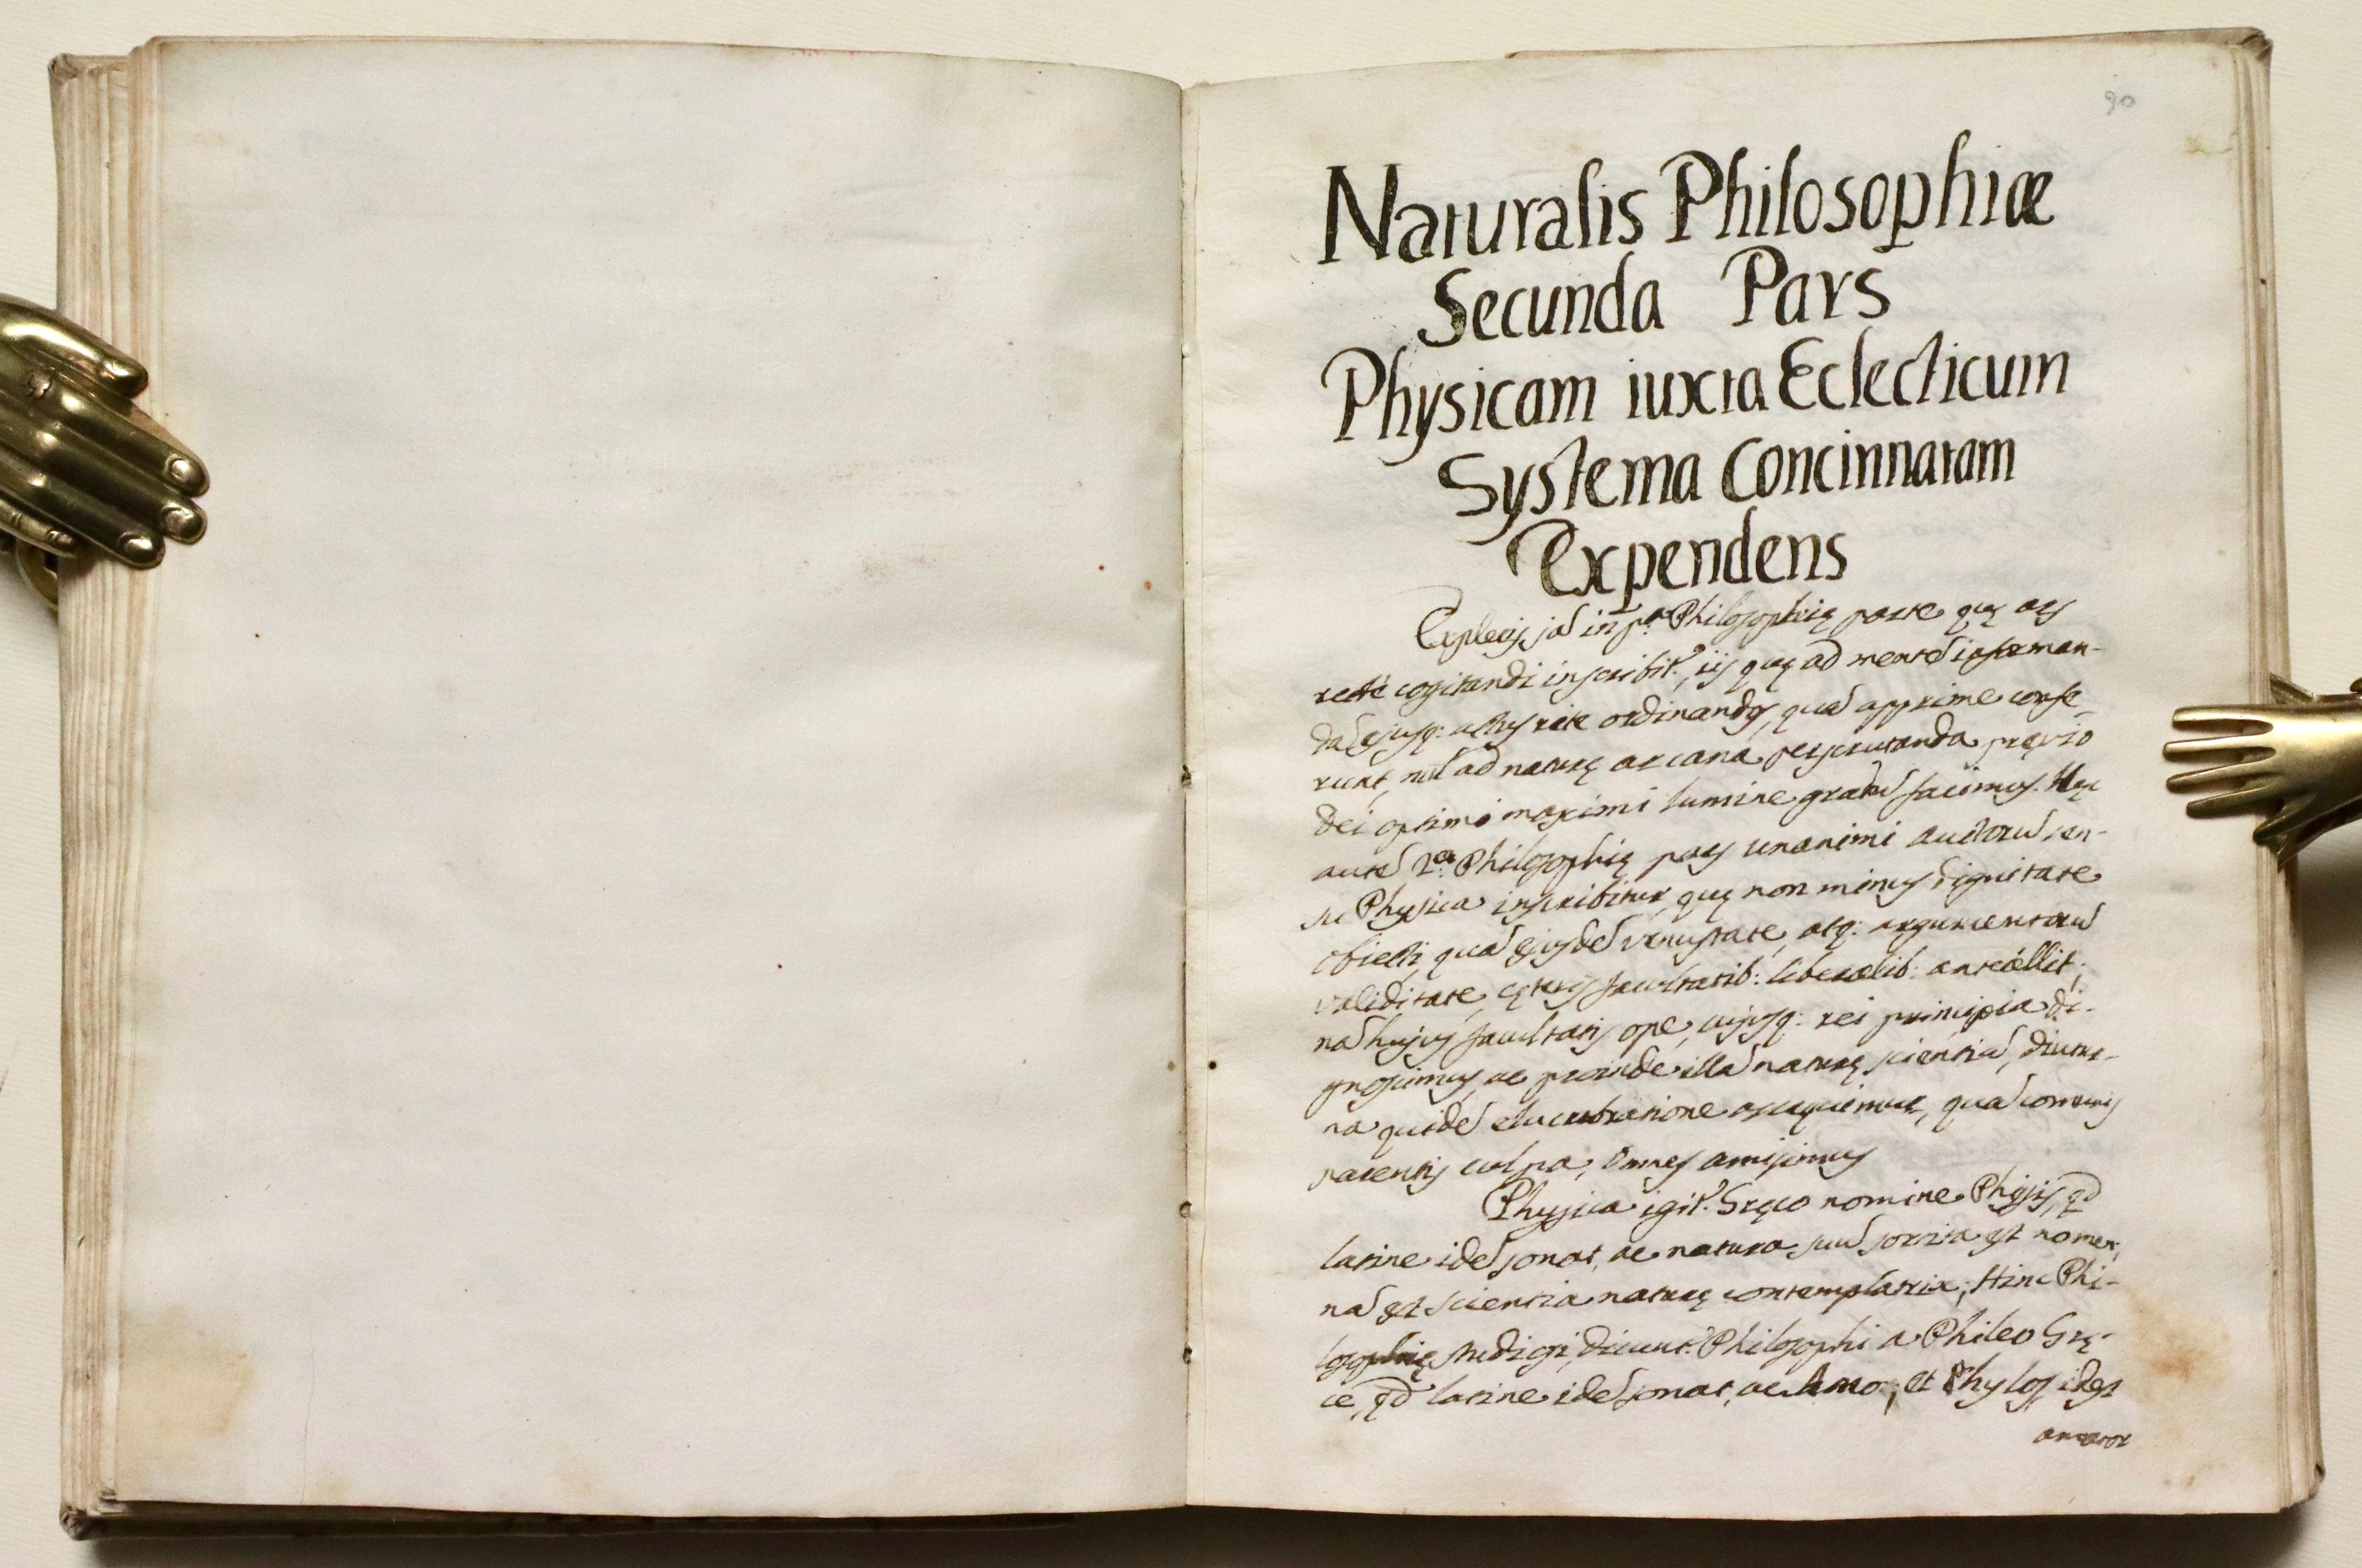 90
Naturalis Philosophiæ
Secunda Pars
Physicam iuxta Eclecticum
Systema Concinnatam
Expendens
Expletis jã in pª Philosophię parte quę ars
recte cogitandi inscribit', iis quę ad mentẽ informan-
dã ejusq: actus rite ordinandos, quã apprime confe
runt, ad naturę arcana perscrutanda, pręvio
Dei optimi maximi lumine gradũ facimus. Hęc
autẽ 2ª Philosophię pars unanimi auctorũ sen-
su Physica inscribitur, quę non minus dignitate
objecti, quã ejusdẽ venustate, atq: argumentorũ
validitate, cęteris facultatib: liberalib: antecellit;
nã hujus facultatis ope, cujusq: rei principia di-
gnoscimus, ac proinde illã naturę scientiã, diutur-
na quidẽ elucubratione assequimur, quã comunis
parentis culpa, omnes amisimus
Physica igit' Gręco nomine Physis, qd
latine idẽ sonat, ac natura, suũ sortita est nomen,
nã est scientia naturę contemplatrix; Hinc Phi-
losophię studiosi, dicunt' Philosophi a Phileo Grę-
ce, qd latine idẽ sonat, ac Amo, et Phylos idest
amator